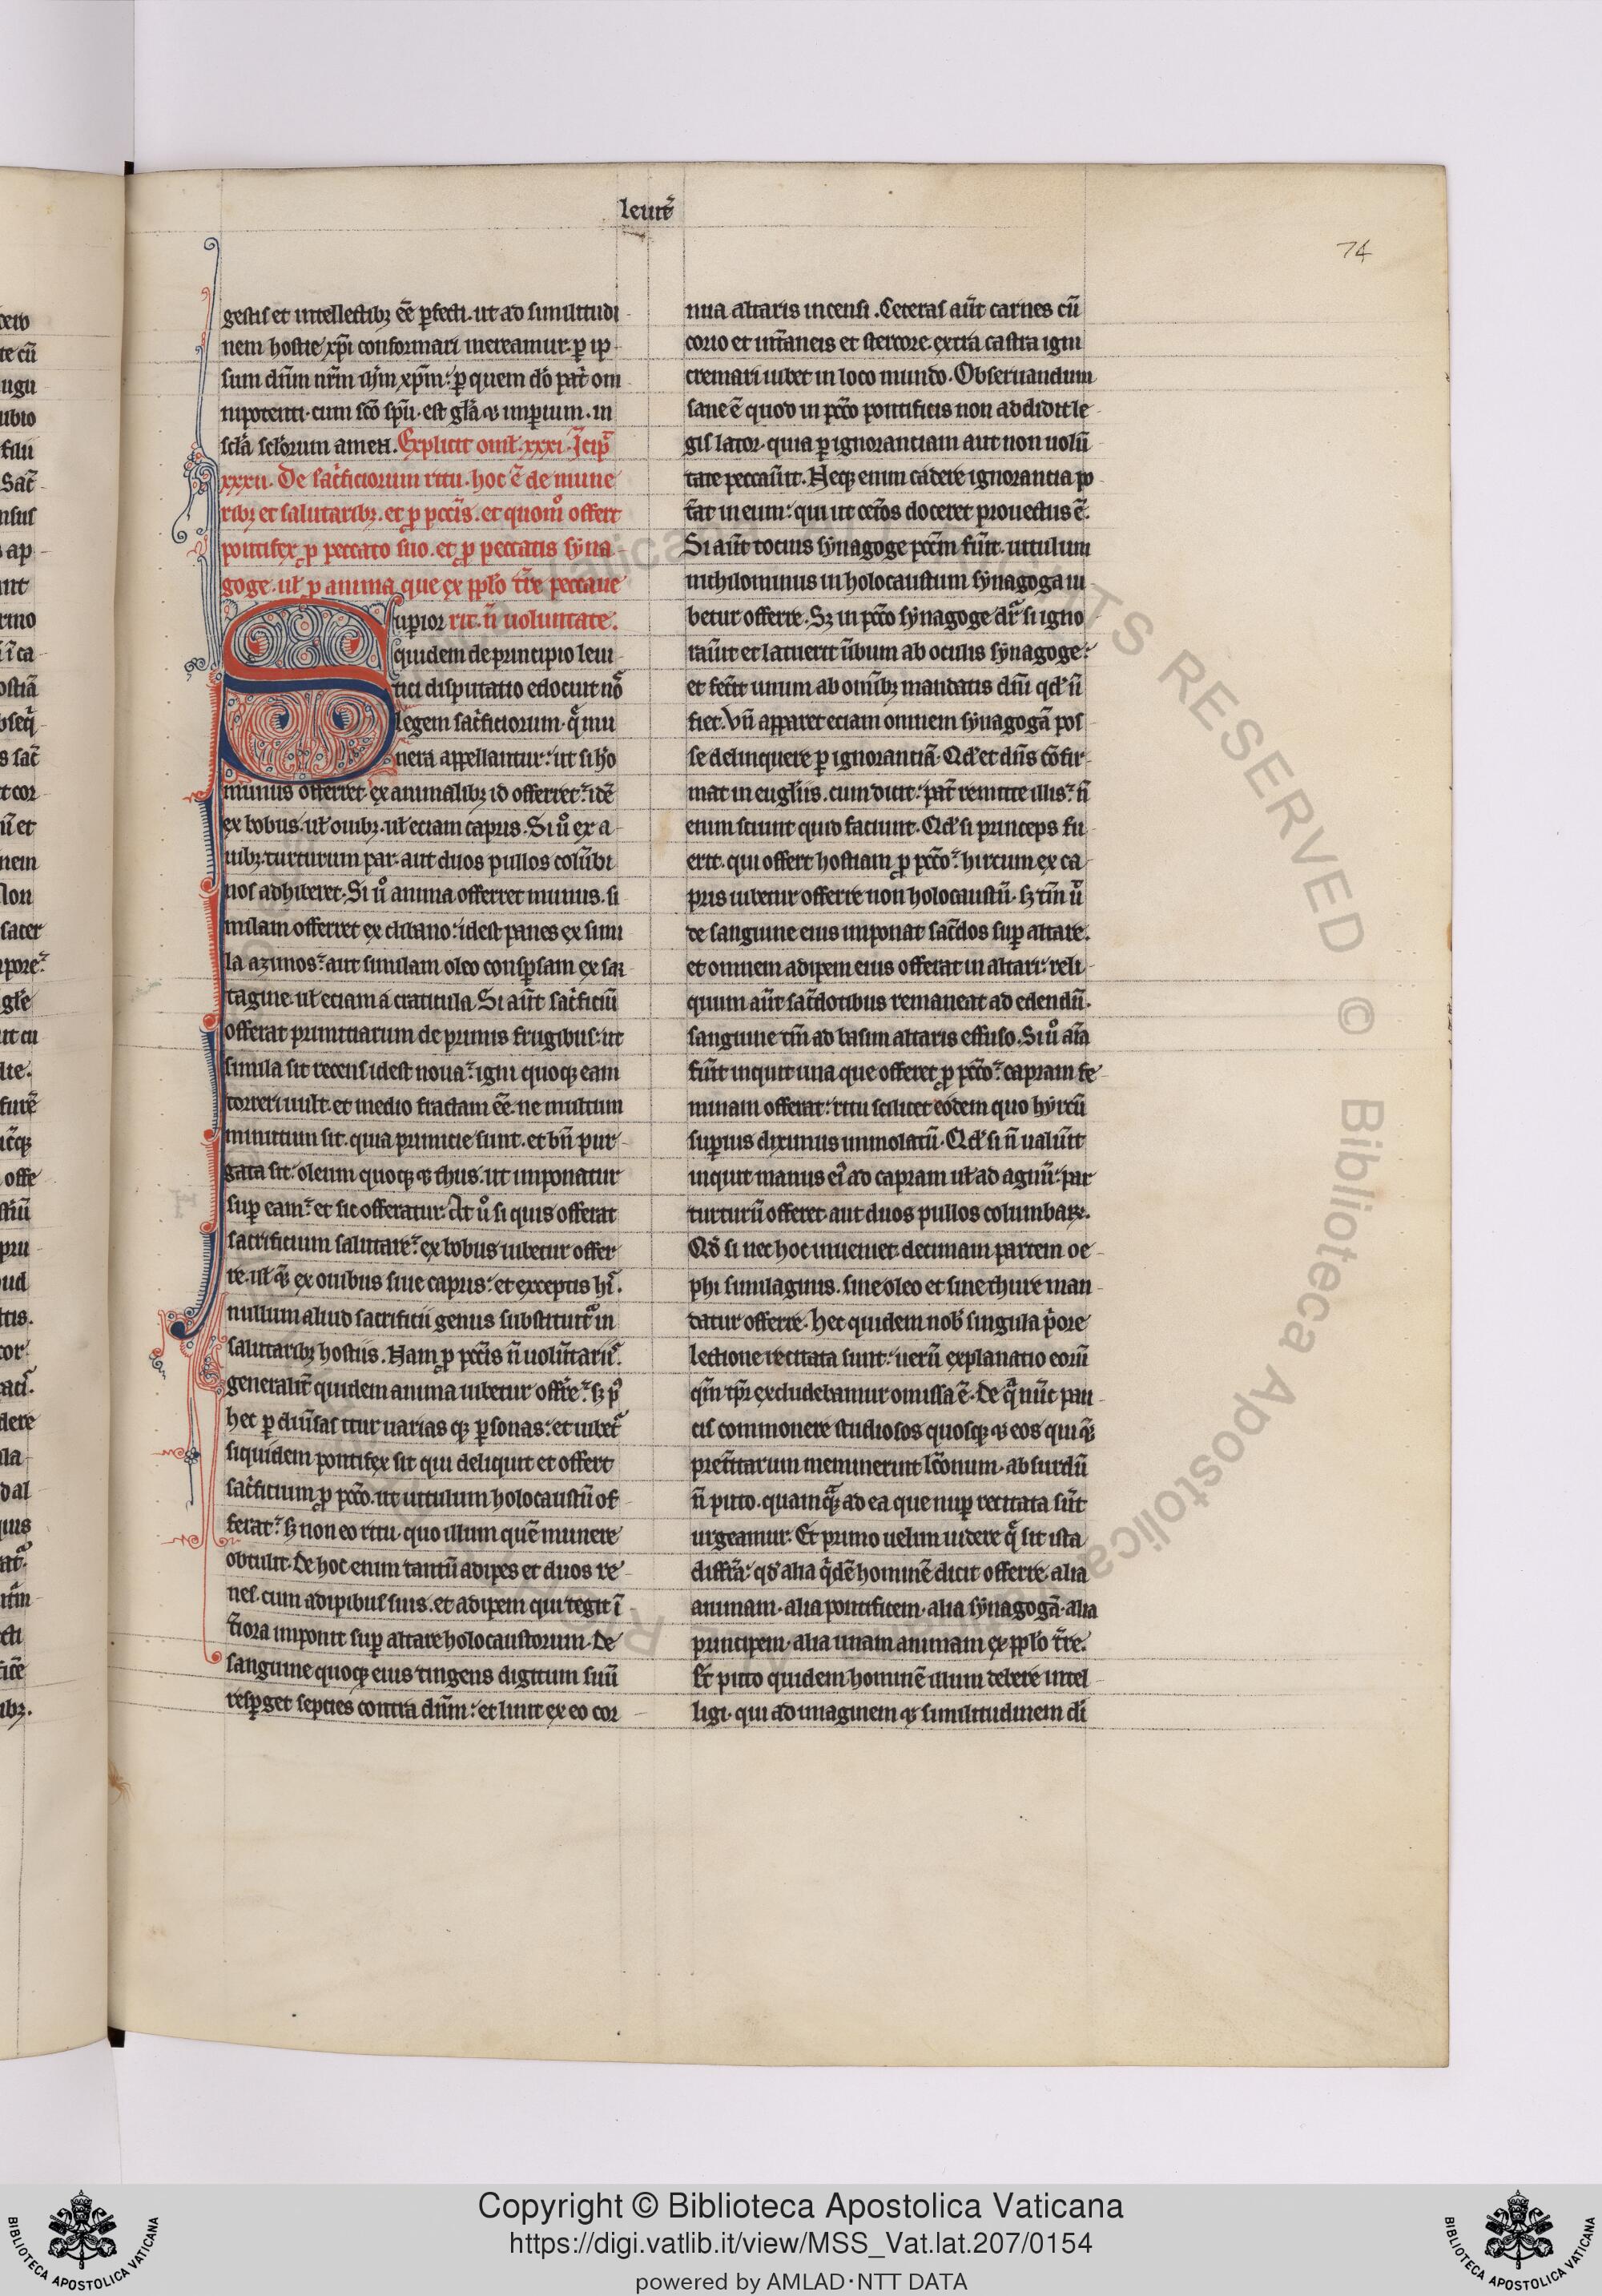 leuit᷑
74
gestis et intellectibꝫ eē ꝑfecti. ut ad similitudi
nem hostie xp̄i conformari mereamur. ꝑ ip
sum dūm nr̄m ih̄m xp̄m. ꝑ quem dō pat̄ om
nipotenti. cum sc̄o sp̄u. est gl̄a ⁊ imꝑium. in
scl̄a scl̄orum amen. Explicit omel̄. xxxi. Īcip̄
xxxii. De sac̄ficiorum ritu. hoc ē de mune
ribꝫ et salutaribꝫ. et ꝓ pcc̄is. et quom̊ offert
pontifex ꝓ peccato suo. et ꝓ peccatis syna
goge. ul̄ ꝓ anima que ex ppl̄o tr̄e peccaue
Suꝑior rit. n̄ uoluntate.
quidem de principio leui
tici disputatio edocuit nō
legem sac̄ficiorum. q̄ mu
nera appellantur. ut si hō
munus offerret. ex animalibꝫ id offerret. idē
ex bobus. ul̄ ouibꝫ. ul̄ eciam capris. Si ů ex a
uibꝫ. turturum par. aut duos pullos colūbi
nos adhiberet. Si ů anima offerret munus. si
milam offerret ex clibano. idest panes ex simi
la azimos. aut similam oleo consꝑsam ex sar
tagine. ul̄ eciam a craticula. Si aūt sac̄ficiū
offerat primitiarum de primis frugibus. ut
simila sit recens idest noua. igni quoqꝫ eam
torreri uult. et medio fractam eē. ne multum
minutum sit. quia primitie sunt. et bn̄ pur
gata sit. oleum quoqꝫ ⁊ thus. ut imponatur
suꝑ eam. et sic offeratur. At ů si quis offerat
sacrificium salutare. ex bobus iubetur offer
re. ul̄ qꝫ ex ouibus siue capris. et exceptis hi᷑.
nullum aliud sacrificii genus substituit᷑ in
salutaribꝫ hostiis. Nam ꝓ pcc̄is n̄ uolūtarii᷑.
generalit̄ quidem anima iubetur offr̄e. sꝫ p᷒
hec ꝑ diūsas itur uarias qꝫ ꝑsonas. et iubet᷑
siquidem pontifex sit qui deliquit et offert
sac̄ficium ꝓ pcc̄o. ut uitulum holocaustū of
ferat. sꝫ non eo ritu. quo illum quē munere
obtulit. De hoc enim tantū adipes et duos re
nes. cum adipibus suis. et adipem qui tegit ī
t̄iora imponit suꝑ altare holocaustorum. De
sanguine quoqꝫ eius tingens digitum suū
resꝑget septies contra dūm. et linit ex eo cor
nua altaris incensi. Ceteras aūt carnes cū
corio et int̄aneis et stercore. extra castra igni
cremari iubet in loco mundo. Obseruandum
sane ē quod in pcc̄o pontificis non addidit le
gis lator. quia ꝑ ignoranciam aut non uolū
tate peccaūit. Neqꝫ enim cadere ignorantia po
t̄at in eum. qui ut cet̄os doceret prouectus ē.
Si aūt tocius synagoge pcc̄m fūit. uitulum
nichilominus in holocaustum synagoga iu
betur offerre. Sꝫ in pcc̄o synagoge dr̄ si igno
raūit et latuerit ūbum ab oculis synagoge.
et fec̄it unum ab omībꝫ mandatis dn̄i qd̄ n̄
fiet. Vn̄ apparet eciam omnem synagogā pos
se delinquere ꝑ ignorantiā. Qd̄ et dn̄s cōfir
mat in eugl̄iis. cum dicit. pat̄ remitte illis. n̄
enim sciunt quid faciunt. Qd̄ si princeps fu
erit. qui offert hostiam ꝓ pcc̄o. hircum ex ca
pris iubetur offerre non holocaustū. sꝫ tm̄ u᷑
de sanguine eius imponat sac̄dos suꝑ altare.
et omnem adipem eius offerat in altari. reli
quum aūt sac̄dotibus remaneat ad edendū.
sanguine tm̄ ad basim altaris effuso. Si ů aīa
fūit inquit una que offeret ꝓ pcc̄o. capram fe
minam offerat. ritu scilicet eodem quo hyrcū
suꝑius diximus immolatū. Qd̄ si n̄ ualūit
inquit manus ei᷒ ad capram ul̄ ad agnū. par
turturū offeret. aut duos pullos columbaꝝ.
Qd̄ si nec hoc inueniet. decimam partem oe
phi similaginis. sine oleo et sine thure man
datur offerre. Hec quidem nob̄ singula p̄ore
lectione recitata sunt. uerū explanatio eorū
qm̄ tp̄r excludebamur omissa ē. De q̄ nūc pau
cis commonere studiosos quosqꝫ ⁊ eos qui qꝫ
pret̄itarum meminerint lc̄onum. absurdū
n̄ puto. quamqꝫ ad ea que nuꝑ recitata sūt
urgeamur. Et primo uelim uidere q̄ sit ista
diffr̄a. qd̄ alia q̄dē hominē dicit offerre. alia
animam. alia pontificem. alia synagogā. alia
principem. alia unam animam ex ppl̄o tr̄e.
Et puto quidem hominē illum debere intel
ligi. qui ad imaginem ⁊ similitudinem di᷑
Copyright © Biblioteca Apostolica Vaticana
https://digi.vatlib.it/view/MSS_Vat.lat.207/0154
powered by AMLAD·NTT DATA